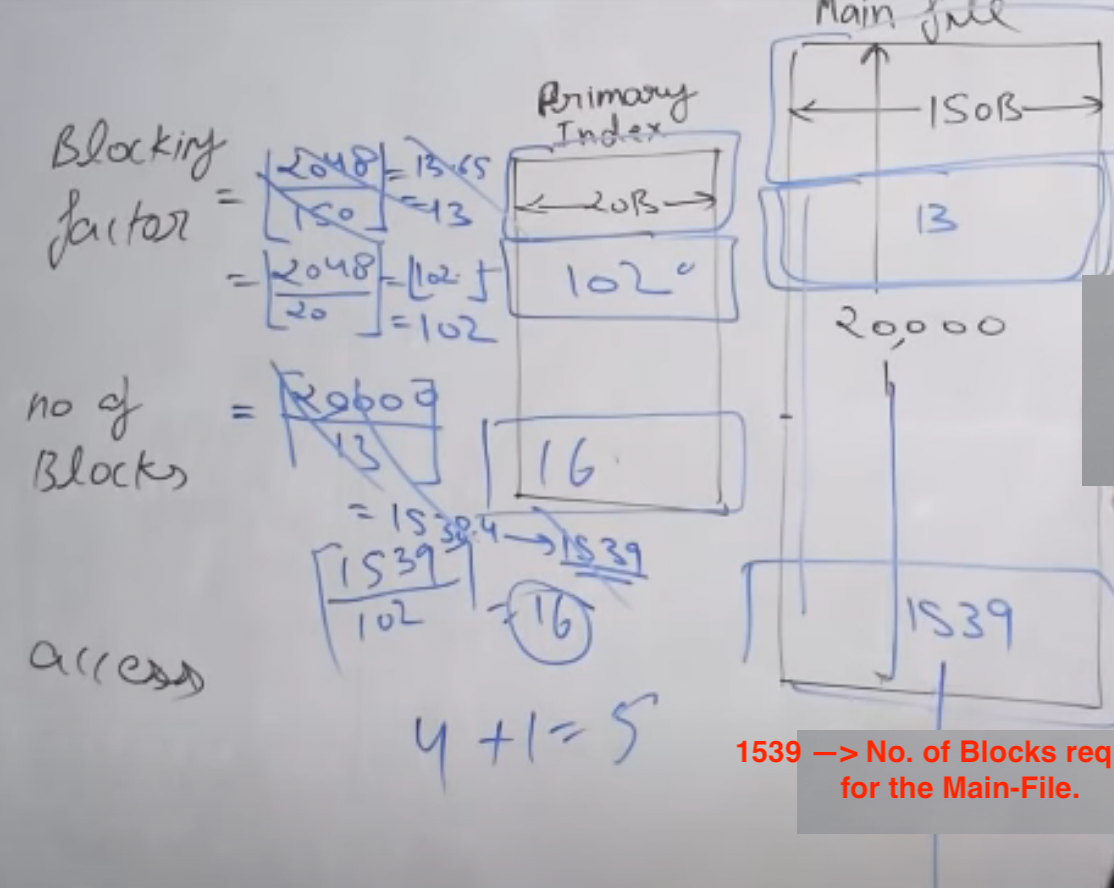 Main file
Primary
Index
150B
Blocking
factor
= ⌊2048/150⌋ = 13.65
= 13
20B
13
= ⌊2048/20⌋ = ⌊102.⌋
= 102
102
20,000
no of
Blocks
= ⌈20000/13⌉
16
= 1538.4 → 1539
⌈1539/102⌉ = 16
1539
access
4 + 1 = 5
1539 —> No. of Blocks req
for the Main-File.